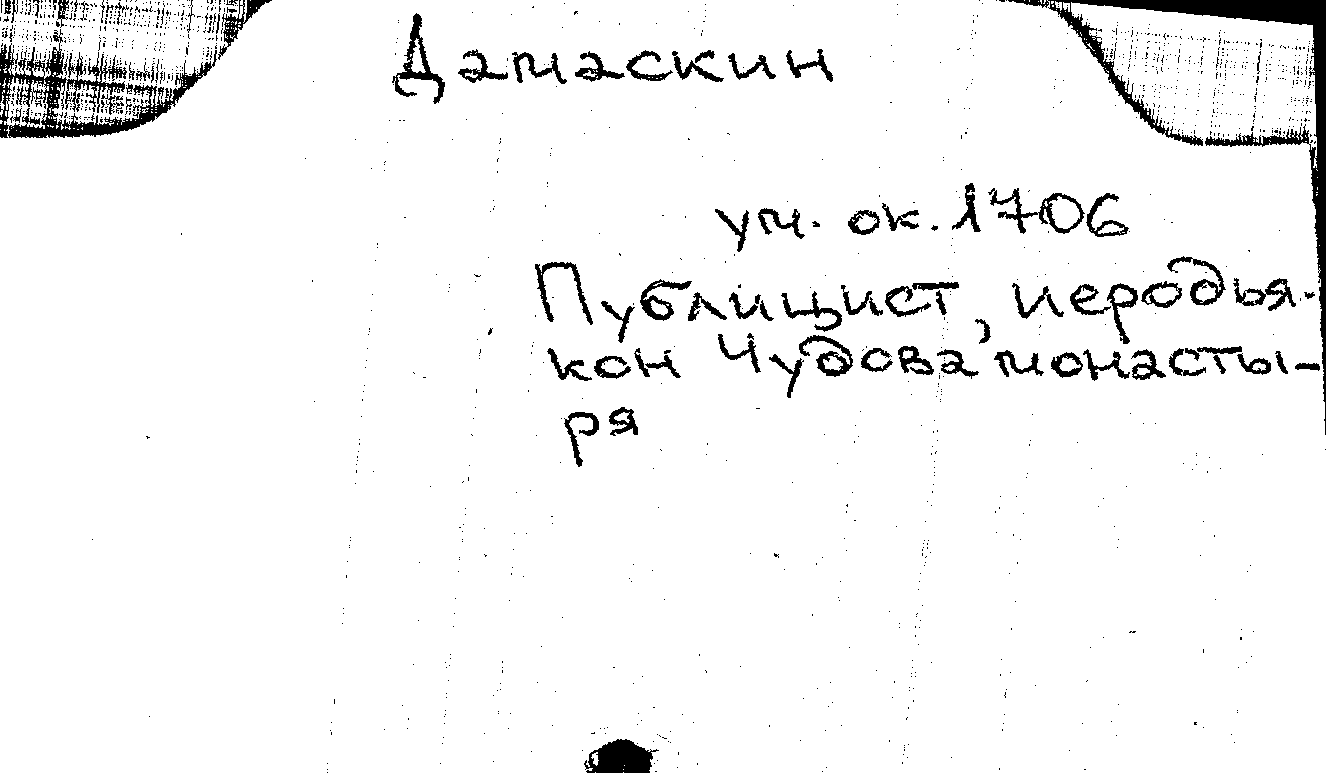 Дамаскин
ум. ок. 1706
Публицист, иеродья-
кон Чудова монасты-
ря